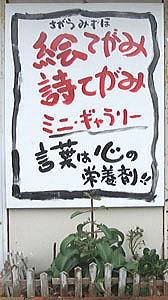 さがらみずほ
絵てがみ
詩てがみ
ミニ・ギャラリー
言葉は心の
栄養剤!!